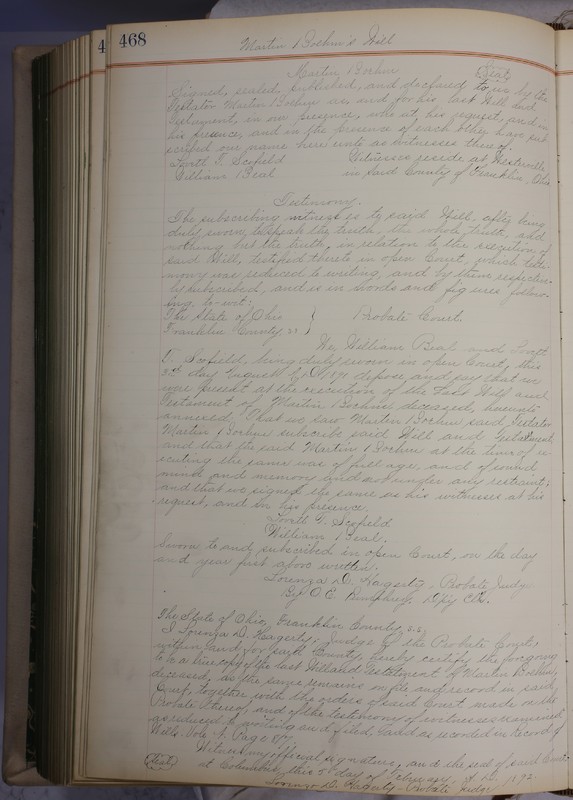 4
468
Martin Boehm's Will
Martin Boehm (Seal)
Signed, sealed, published, and declared to us by the
Testator Martin Boehm as, and for his last Will and
Testament, in our presence, who at his request, and in
his presence, and in the presence of each other, have sub
scribed our name hereunto as witnesses thereof.
Forth T. Scofield Witnesses reside at Westerville,
William Beal in said County of Franklin, Ohio
Testimony.
The subscribing witnesses to said Will, after being
duly sworn, to speak the truth, the whole truth, and
nothing but the truth, in relation to the execution of
said Will, testified thereto in open Court, which testi
mony was reduced to writing, and by them respective
ly subscribed, and is in words and figures follow
ing, to-wit:
The State of Ohio } Probate Court.
Franklin County, ss
We, William Beal and Forth
T. Scofield, being duly sworn in open Court, this
day A.D. 189 depose and say that we
were present at the execution of the Last Will and
Testament of Martin Boehm deceased, hereunto
annexed; That we saw Martin Boehm said Testator
Martin Boehm subscribe said Will and Testament,
and that the said Martin Boehm at the time of ex
ecuting the same was of full age, and of sound
mind and memory and not under any restraint;
and that we signed the same as his witnesses at his
request, and in his presence.
Forth T. Scofield
William Beal.
Sworn to and subscribed in open Court, on the day
and year first above written.
Lorenzo D. Hagerty, Probate Judge
By O. E. Pumphrey, Dpy Clk.
The State of Ohio, Franklin County, s.s.
I Lorenzo D. Hagerty, Judge of the Probate Court,
within and for said County, hereby certify the foregoing
to be a true copy of the last Will and Testament of Martin Boehm,
deceased, as the same remains on file and record in said
Court, together with the orders of said Court made on the
Probate thereof, and of the testimony of witnesses examined
as reduced to writing and filed, and as recorded in Record of
Wills. Vol. Page
Witness my official signature, and the seal of said Court
(Seal) at Columbus, this day of February, A.D. 1892.
Lorenzo D. Hagerty - Probate Judge